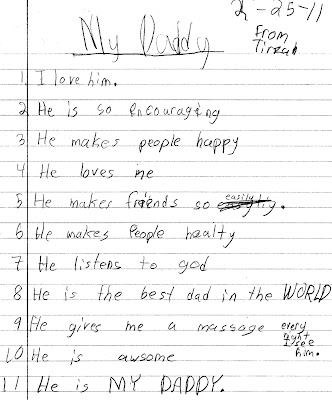 2-25-11
My Daddy
from
Tirzah
1 I love him.
2 He is so encouraging
3 He makes people happy
4 He loves me
5 He makes friends so easily.
6 He makes People healty
7 He listens to god
8 He is the best dad in the WORLD
9 He gives me a massage every night I see him.
10 He is awsome
11 He is MY DADDY.